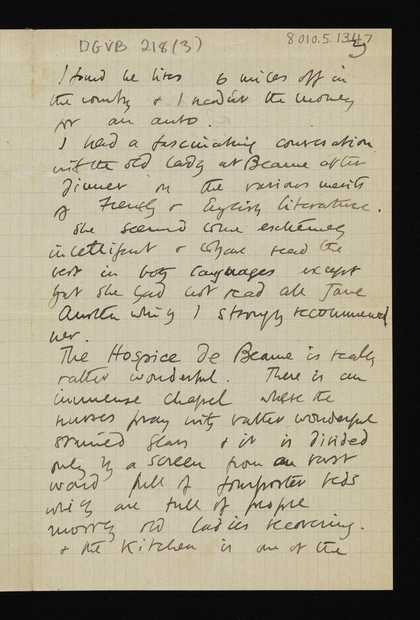 DGVB 218(3)
8010.5.1347
3)
I found he lives 6 miles off in
the country & I hadnt the money
for an auto.
I had a fascinating conversation
with the old lady at Beaune after
dinner on the various merits
of French & English literature.
She seemed extremely
intelligent & to have read the
best in both languages except
that she had not read all Jane
Austen which I strongly recommened
her.
The Hospice de Beaune is really
rather wonderful. There is an
immense chapel where the
nurses pray with rather wonderful
stained glass & it is divided
only by a screen from an vast
ward full of fourposter beds
which are full of people
mostly old ladies recovering.
& the kitchen is one of the